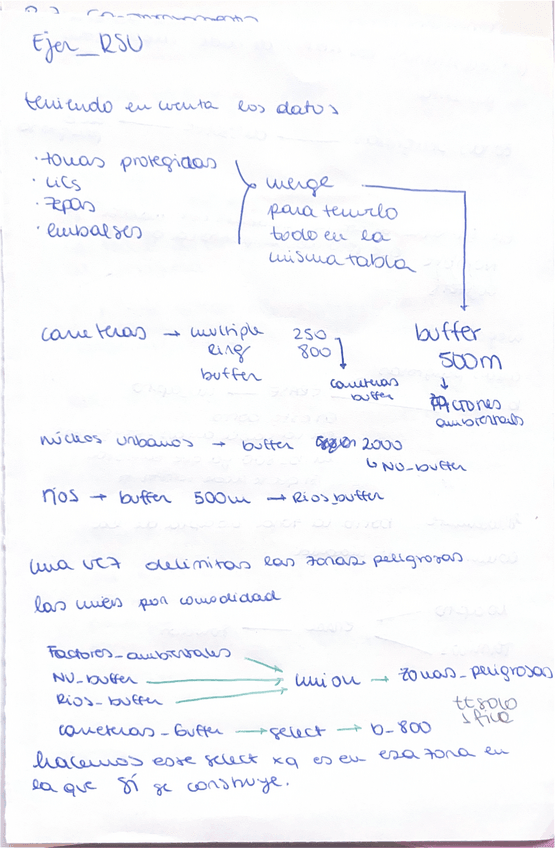 Ejer_RSU
teniendo en cuenta los datos
· zonas protegidas
· LICs
· Zepas
· embalses
merge
para tenerlo
todo en la
misma tabla
buffer
500m
↓
Factores
ambientales
carreteras → multiple 250
Ring 800
buffer
carreteras
buffer
núcleos urbanos → buffer 2000
↳ NU_buffer
ríos → buffer 500m → Rios_buffer
una vez delimitas las zonas peligrosas
las unies por comodidad
Factores_ambientales
NU_buffer → union → zonas_peligrosas
Rios_buffer
tt solo
1 fila
carreteras_buffer → select → b_800
hacemos este select xq es en esa zona en
la que sí se construye.